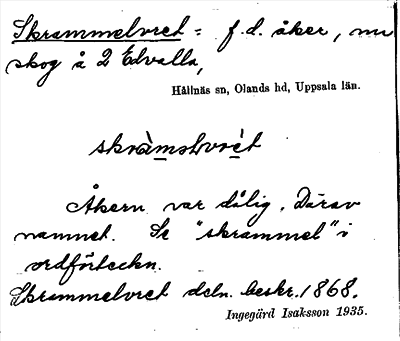 Skrammelvret = f.d. åker, nu
skog å 2 Edvalla,
Hållnäs sn, Olands hd, Uppsala län.
skràməlvrèt
Åkern var dålig. Därav
namnet. Se "skrammel" i
ordförteckn.
Skrammelvret deln. beskr. 1868.
Ingegärd Isaksson 1935.